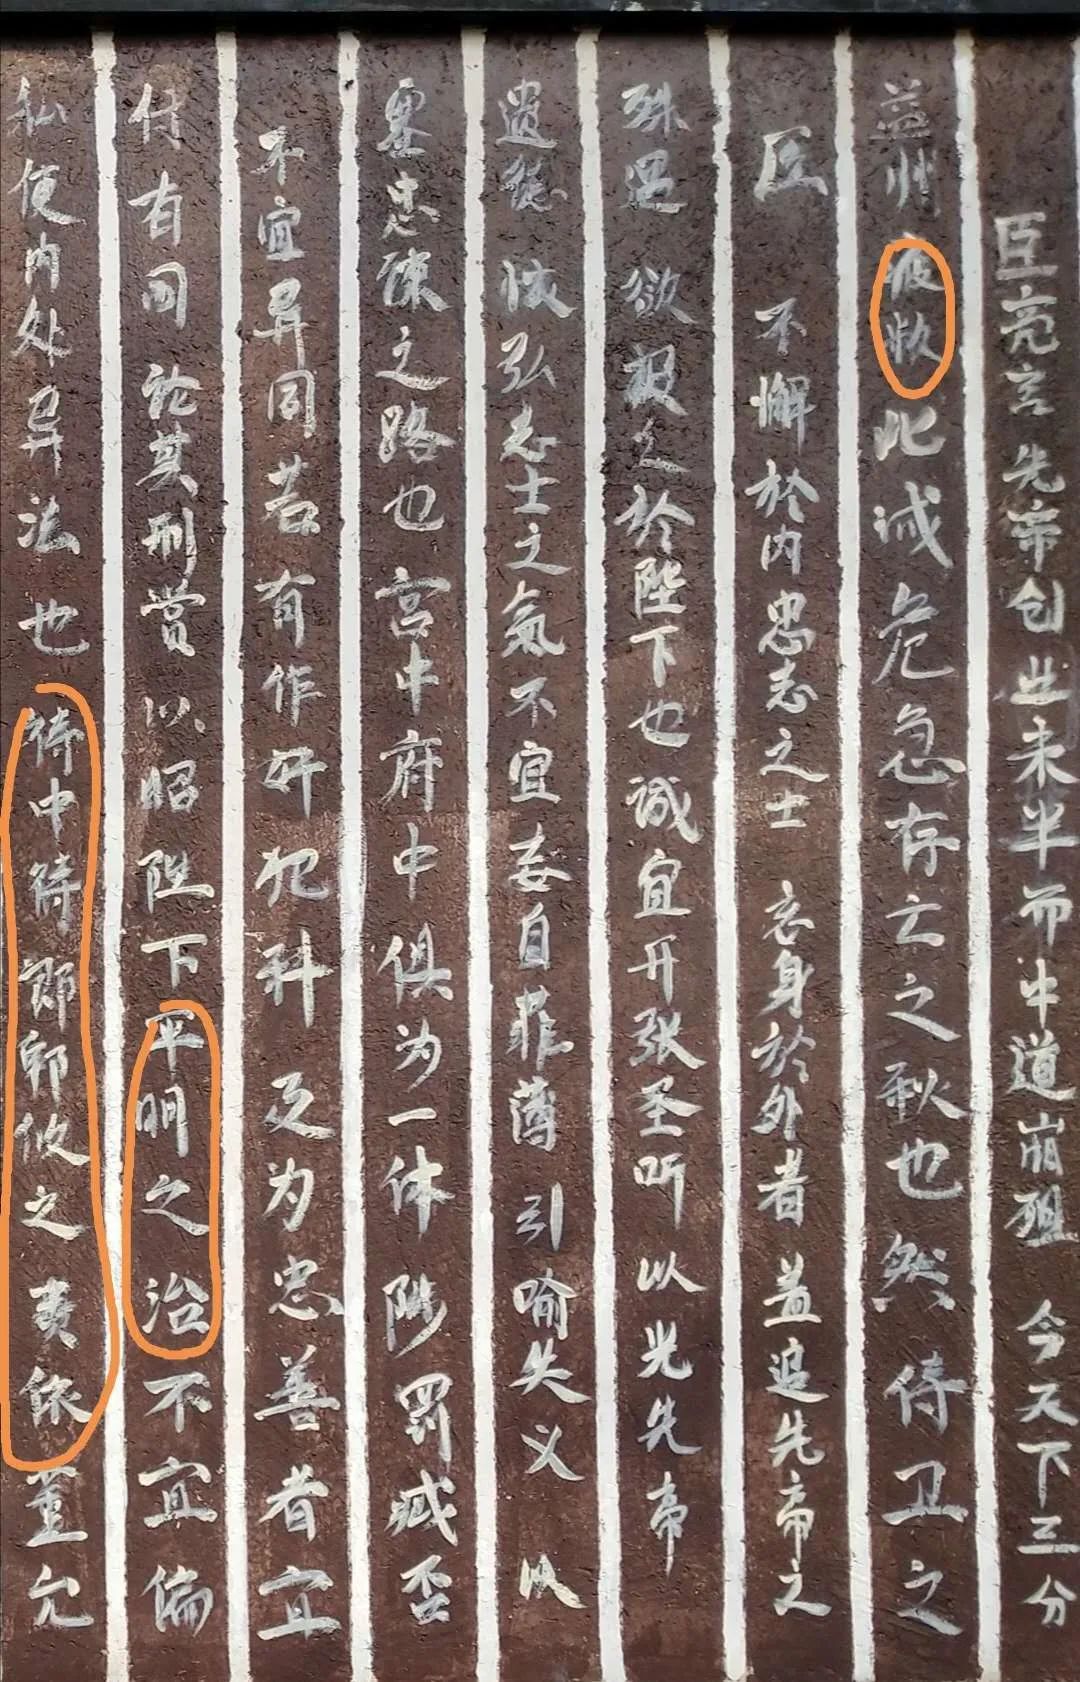 臣亮言先帝创业未半而中道崩殂今天下三分
益州疲敝此诚危急存亡之秋也然侍卫之
臣不懈於内忠志之士忘身於外者盖追先帝之
殊遇欲报之於陛下也诚宜开张圣听以光先帝
遗德恢弘志士之氣不宜妄自菲薄引喻失义以
塞忠谏之路也宫中府中俱为一体陟罚臧否
不宜异同若有作奸犯科及为忠善者宜
付有司论其刑赏以昭陛下平明之治不宜偏
私使内外异法也待中待郎郭攸之费依董允